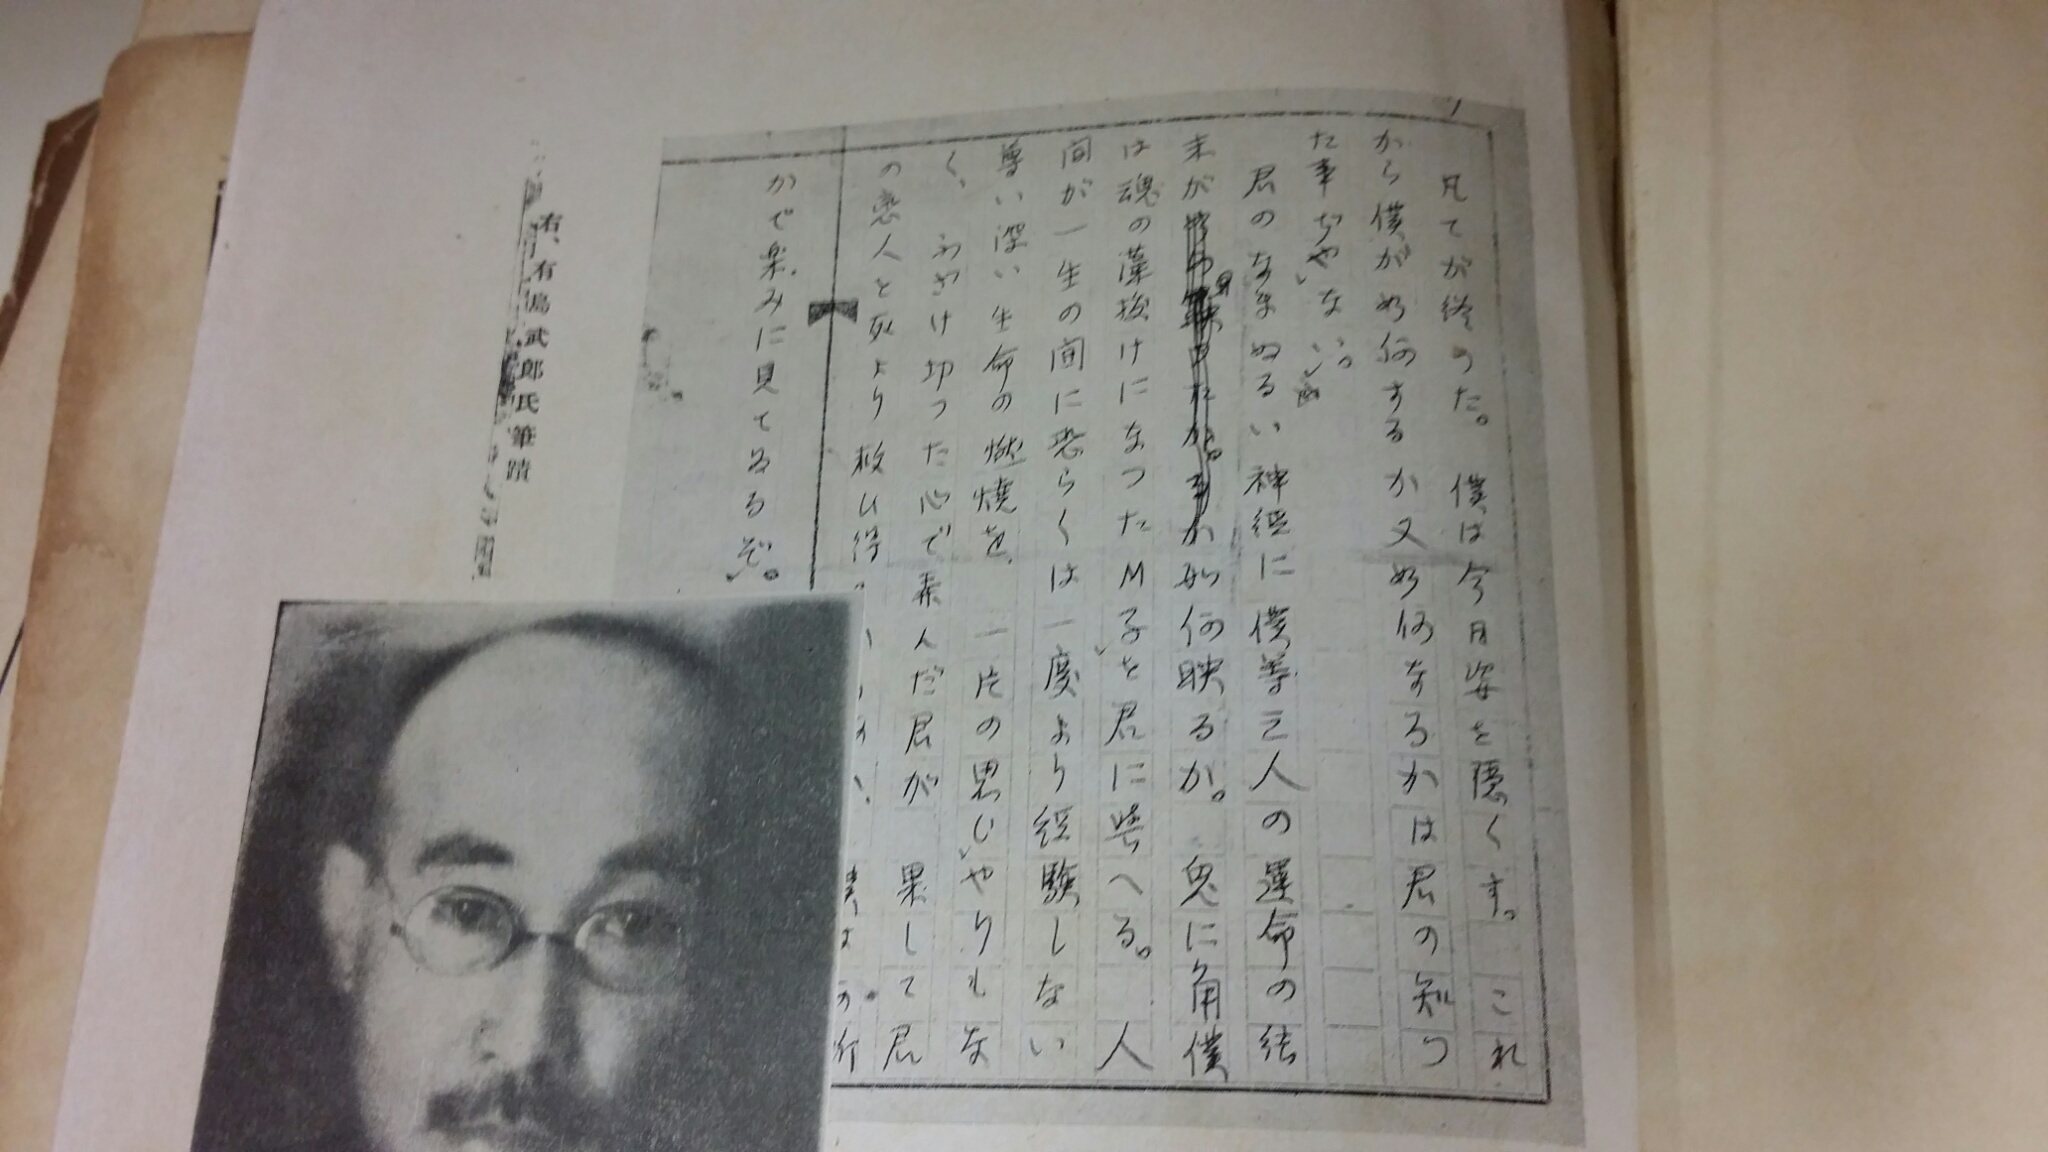 凡てが終つた。僕は今日姿を隠くす。これ
から僕が如何するか又如何なるかは君の知つ
た事ぢやない。
君のなまぬるい神経に僕等三人の運命の結
末が如何映るか。兎に角僕
は魂の藻抜けになつたM子を君に誓へる。人
間が一生の間に恐らくは一度より経験しない
尊い深い生命の燃焼を、一片の思ひやりもな
く、ふざけ切つた心で素人だ君が果して君
の恋人を死より救ひ得
かで楽みに見てゐるぞ。
右、有島武郎氏筆蹟